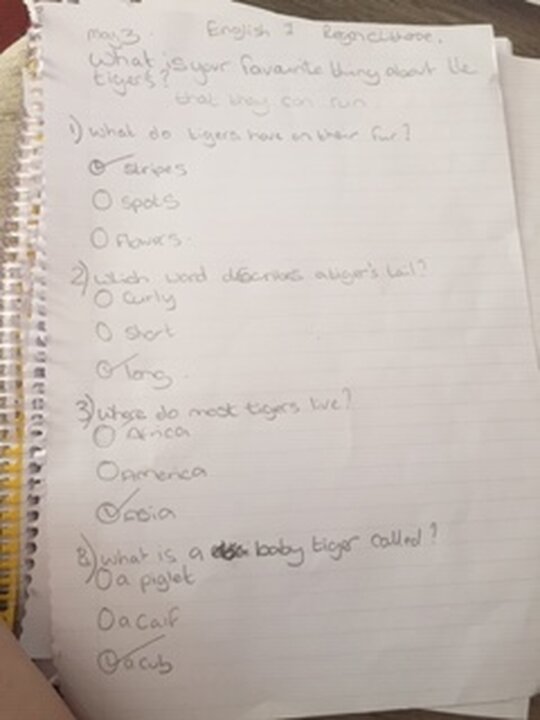 May 3 English
What is your favourite thing about the
tigers?
that they can run
1) What do tigers have on their fur?
stripes
spots
flowers.
2) Which word describes a tiger's tail?
Curly
short
long
3) Where do most tigers live?
Africa
America
Asia
8) What is a baby tiger called?
a piglet
a calf
a cub